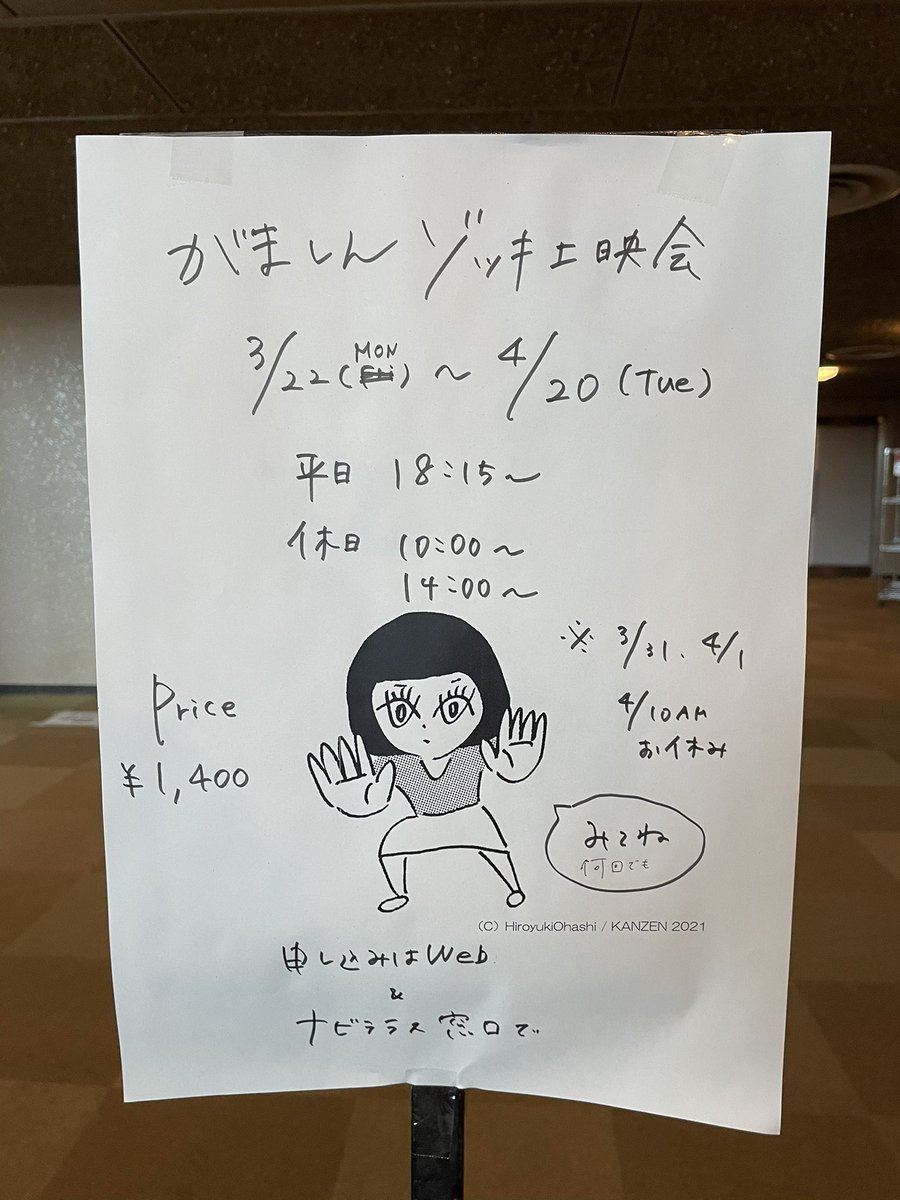 がましん ゾッキ上映会
3/22(MON) ~ 4/20 (Tue)
平日 18:15~
休日 10:00~
14:00~
※ 3/31、4/1
4/10AM
お休み
Price
¥1,400
みてね
何回でも
(C) HiroyukiOhashi / KANZEN 2021
申し込みはWeb
&
ナビテラス窓口で